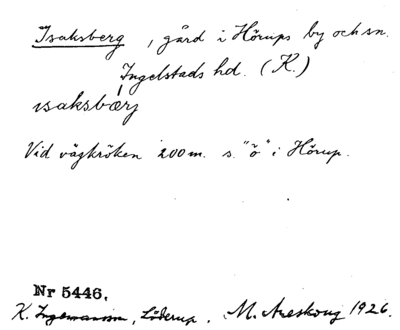 Isaksberg, gård i Hörups by och sn.
Ingelstads hd. (K.)
ısaksbærj
Vid vägkröken 200 m. s. "ö" i Hörup.
Nr 5446.
K. Ingemansson, Löderup. M. Areskoug 1926.